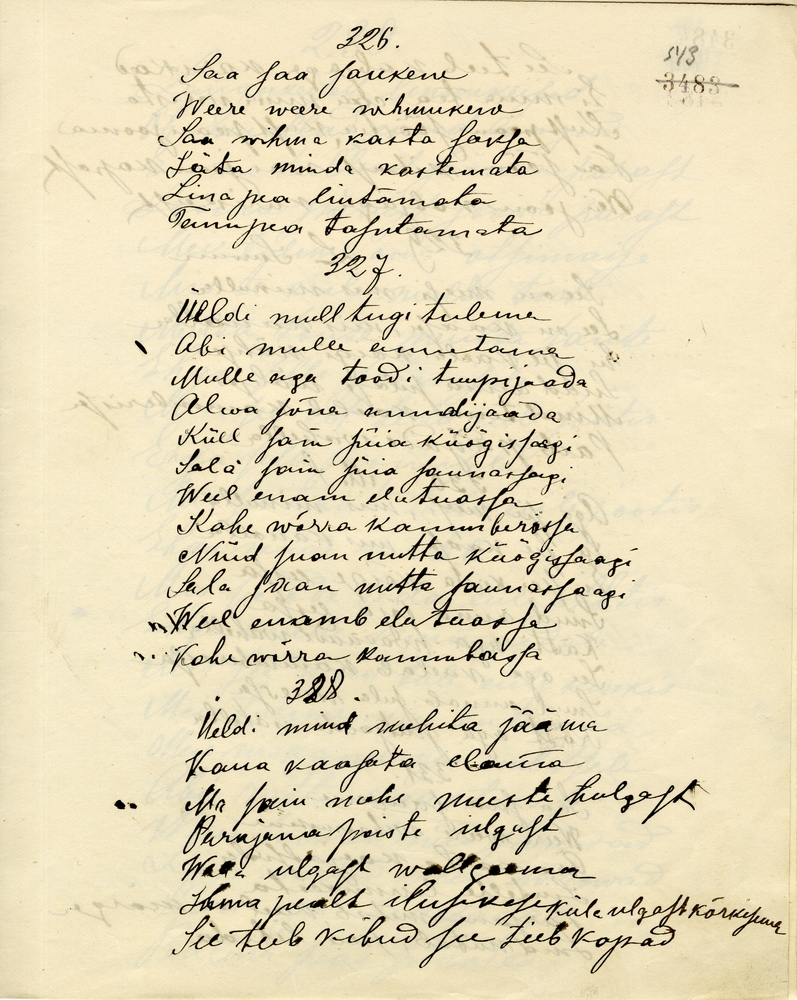 326.
543
3483
Saa saa saukene
Weere weere wihmukene
Saa wihma kasta saksa
Jäta minda kastemata
Linapea liutamata
Tinupea tasutamata
327.
Üeldi mull tugi tulema
Abi mulle annetama
Mulle aga toodi tuupijaada
Alwa sõna andijaada
Küll sain süia küögissagi
Sala sain süia saunassagi
Weel enam elutuassa
Kahe wõrra kammberissa
Nüüd saan nutta küögissaagi
Sala saan nutta saunassaagi
Weel enamb elutuassa
Kahe wõrra kambrissa
328.
Üeldi mind mehita jääma
Kana kaasata elama
Ma sain mehe meeste hulgast
Parajama poiste ulgast
Walla ulgast wallgeema
Ilma pealt ilusikese küla ulgast kõrkesema
See teeb kibud see teeb kapad